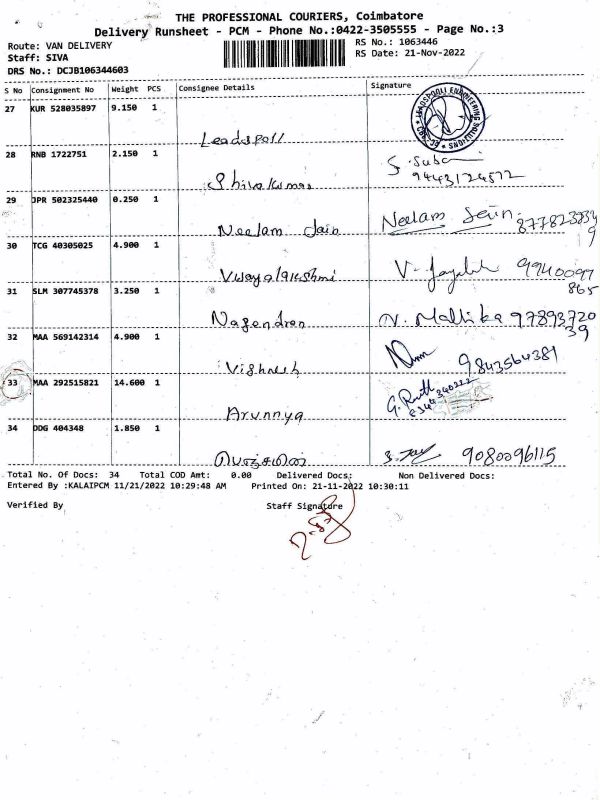 THE PROFESSIONAL COURIERS, Coimbatore
Delivery Runsheet - PCM - Phone No.:0422-3505555 - Page No.:3
Route: VAN DELIVERY RS No.: 1063446
Staff: SIVA RS Date: 21-Nov-2022
DRS No.: DCJB106344603
S No Consignment No Weight PCS Consignee Details Signature
27 KUR 528035897 9.150 1
Leadspoll
28 RNB 1722751 2.150 1
Shivakumar 9443124572
29 JPR 502325440 0.250 1
Neelam Jain Neelam
30 TCG 40305025 4.900 1
Vijayalakshmi 9940097
865
31 SLM 307745378 3.250 1
Nagendran N. Mallika 97893720
39
32 MAA 569142314 4.900 1
Vighnesh 9843564381
33 MAA 292515821 14.600 1
Arunnya
34 DDG 404348 1.850 1
9080096115
Total No. Of Docs: 34 Total COD Amt: 0.00 Delivered Docs: Non Delivered Docs:
Entered By :KALAIPCM 11/21/2022 10:29:48 AM Printed On: 21-11-2022 10:30:11
Verified By Staff Signature